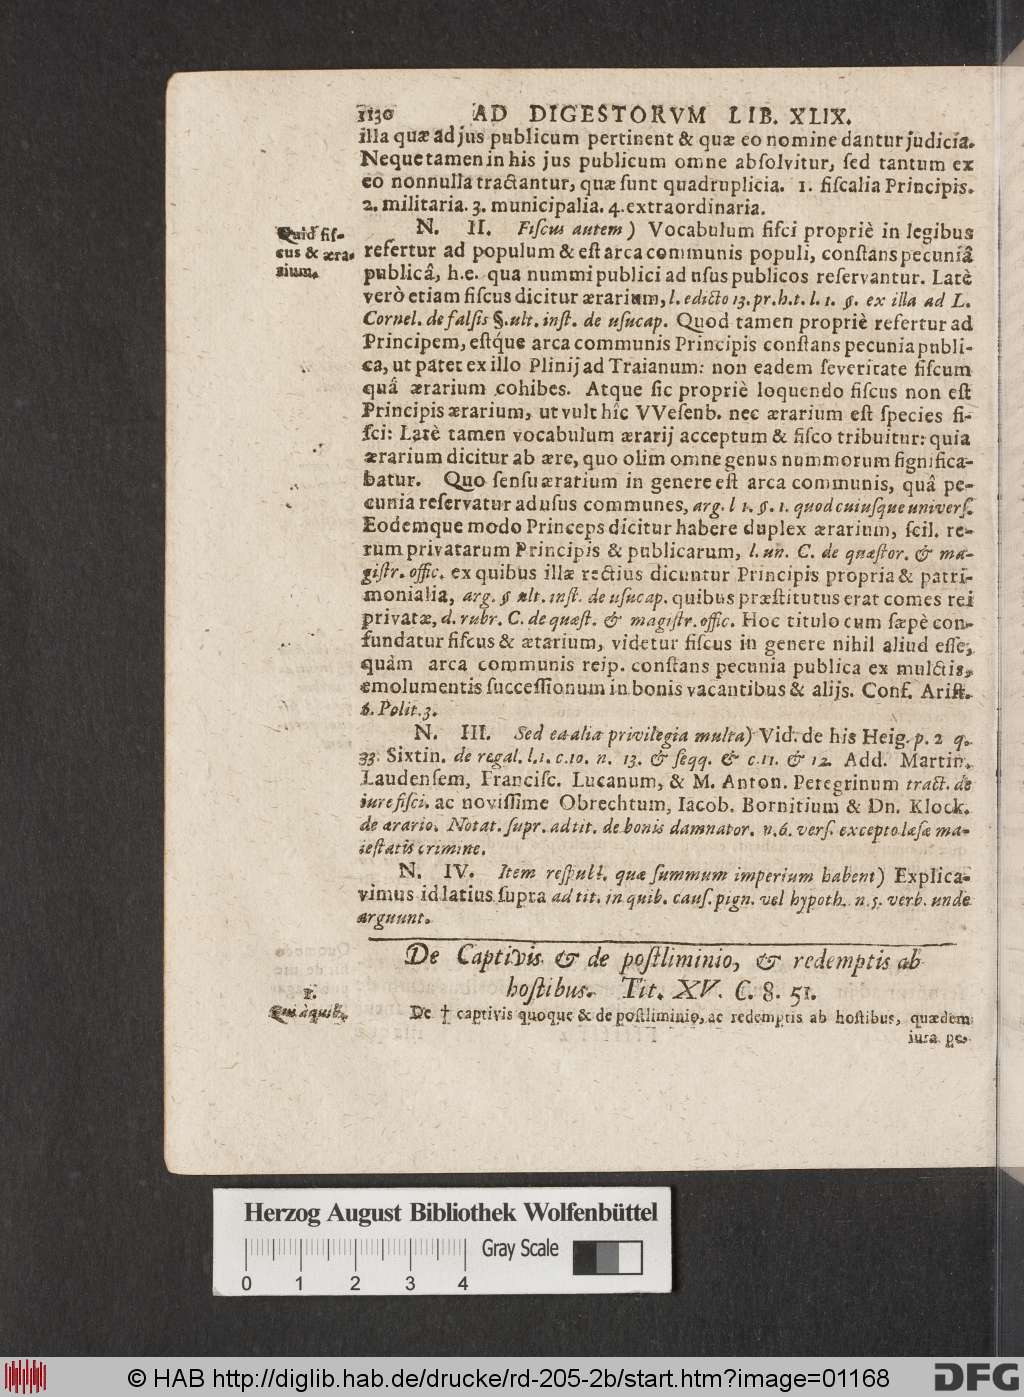 1130 AD DIGESTORVM LIB. XLIX.
illa quæ ad jus publicum pertinent & quæ eo nomine dantur judicia.
Neque tamen in his jus publicum omne absolvitur, sed tantum ex
eo nonnulla tractantur, quæ sunt quadruplicia. 1. fiscalia Principis.
2. militaria. 3. municipalia. 4. extraordinaria.
Quid fis-
cus & æra-
rium.
N. II. Fiscus autem) Vocabulum fisci propriè in legibus
refertur ad populum & est arca communis populi, constans pecuniâ
publicâ, h.e. qua nummi publici ad usus publicos reservantur. Latè
verò etiam fiscus dicitur ærarium, l. edicto 13. pr. h.t. l. 1. §. ex illa ad L.
Cornel. de falsis §. ult. inst. de usucap. Quod tamen propriè refertur ad
Principem, estq́ue arca communis Principis constans pecunia publi-
ca, ut patet ex illo Plinij ad Traianum: non eadem severitate fiscum
quâ ærarium cohibes. Atque sic propriè loquendo fiscus non est
Principis ærarium, ut vult hîc VVesenb. nec ærarium est species fi-
sci: Latè tamen vocabulum ærarij acceptum & fisco tribuitur: quia
ærarium dicitur ab ære, quo olim omne genus nummorum significa-
batur. Quo sensu ærarium in genere est arca communis, quâ pe-
cunia reservatur ad usus communes, arg. l 1. §. 1. quod cuiusque univers.
Eodemque modo Princeps dicitur habere duplex ærarium, scil. re-
rum privatarum Principis & publicarum, l. un. C. de quæstor. & ma-
gistr. offic. ex quibus illæ rectius dicuntur Principis propria & patri-
monialia, arg. § ult. inst. de usucap. quibus præstitutus erat comes rei
privatæ, d. rubr. C. de quæst. & magistr. offic. Hoc titulo cum sæpè con-
fundatur fiscus & ætarium, videtur fiscus in genere nihil aliud esse,
quàm arca communis reip. constans pecunia publica ex mulctis,
emolumentis successionum in bonis vacantibus & alijs. Conf. Arist.
6. Polit. 3.
N. III. Sed ea alia privilegia multa) Vid. de his Heig. p. 2 q.
33. Sixtin. de regal. l. 1. c. 10. n. 13. & seqq. & c. 11. & 12. Add. Martin.
Laudensem, Francisc. Lucanum, & M. Anton. Peregrinum tract. de
iure fisci. ac novissime Obrechtum, Iacob. Bornitium & Dn. Klock.
de ærario. Notat. supr. ad tit. de bonis damnator. n. 6. vers. excepto læsæ ma-
iestatis crimine.
N. IV. Item respull. quæ summum imperium habent) Explica-
vimus id latius supra ad tit. in quib. caus. pign. vel hypoth. n. 5. verb. unde
arguunt.
De Captivis & de postliminio, & redemptis ab
hostibus. Tit. XV. C. 8. 51.
1.
Qui à quib.
De † captivis quoque & de postliminio, ac redemptis ab hostibus, quædem
iura pe-
Herzog August Bibliothek Wolfenbüttel
Gray Scale
0 1 2 3 4
© HAB http://diglib.hab.de/drucke/rd-205-2b/start.htm?image=01168
DFG